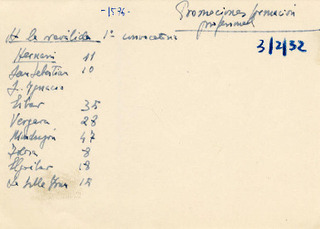 -1574-
Promociones formación
profesional
3/2/52
la reválida 1ª convocatoria
Hernani 11
San Sebastián 10
S. Ignacio
Eibar 35
Vergara 28
Mondragón 47
Tolosa 8
Elgoibar 18
La Salle